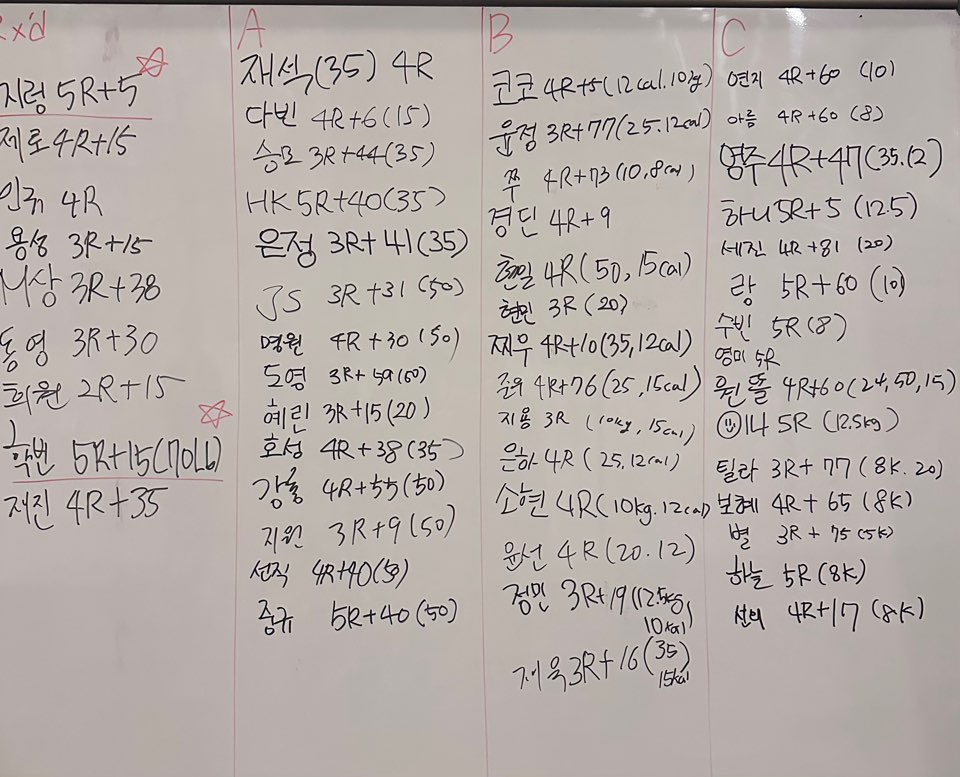 x'd
지령 5R+5
제로 4R+15
인규 4R
용성 3R+15
상 3R+38
동영 3R+30
희원 2R+15
학번 5R+15(70Lb)
재진 4R+35
A
재석(35) 4R
다빈 4R+6(15)
승모 3R+44(35)
HK 5R+40(35)
은정 3R+41(35)
JS 3R+31(50)
명원 4R+30(50)
도영 3R+59(50)
혜린 3R+15(20)
호성 4R+38(35)
강훈 4R+55(50)
지원 3R+9(50)
선직 4R+40(50)
중규 5R+40(50)
B
코코 4R+5(12cal.10kg)
윤정 3R+77(25.12cal)
쭈 4R+73(10,8cal)
경딘 4R+9
현일 4R(50,15cal)
현민 3R(20)
찌우 4R+10(35,12cal)
4R+76(25,15cal)
지용 3R (10kg,15cal)
은하 4R(25,12cal)
소현 4R(10kg.12cal)
윤선 4R(20.12)
정민 3R+19(12.5kg,
10kcal)
재욱 3R+16(35)
15kcal
C
연지 4R+60 (10)
아름 4R+60 (8)
영주 4R+47(35.12)
하니 5R+5 (12.5)
세진 4R+81 (20)
랑 5R+60 (10)
수빈 5R(8)
영미 5R
뭔뜰 4R+60(24,50,15)
나 5R (12.5kg)
틸라 3R+77 (8K.20)
보혜 4R+65 (8K)
별 3R+75(5K)
하늘 5R(8K)
선의 4R+17 (8K)